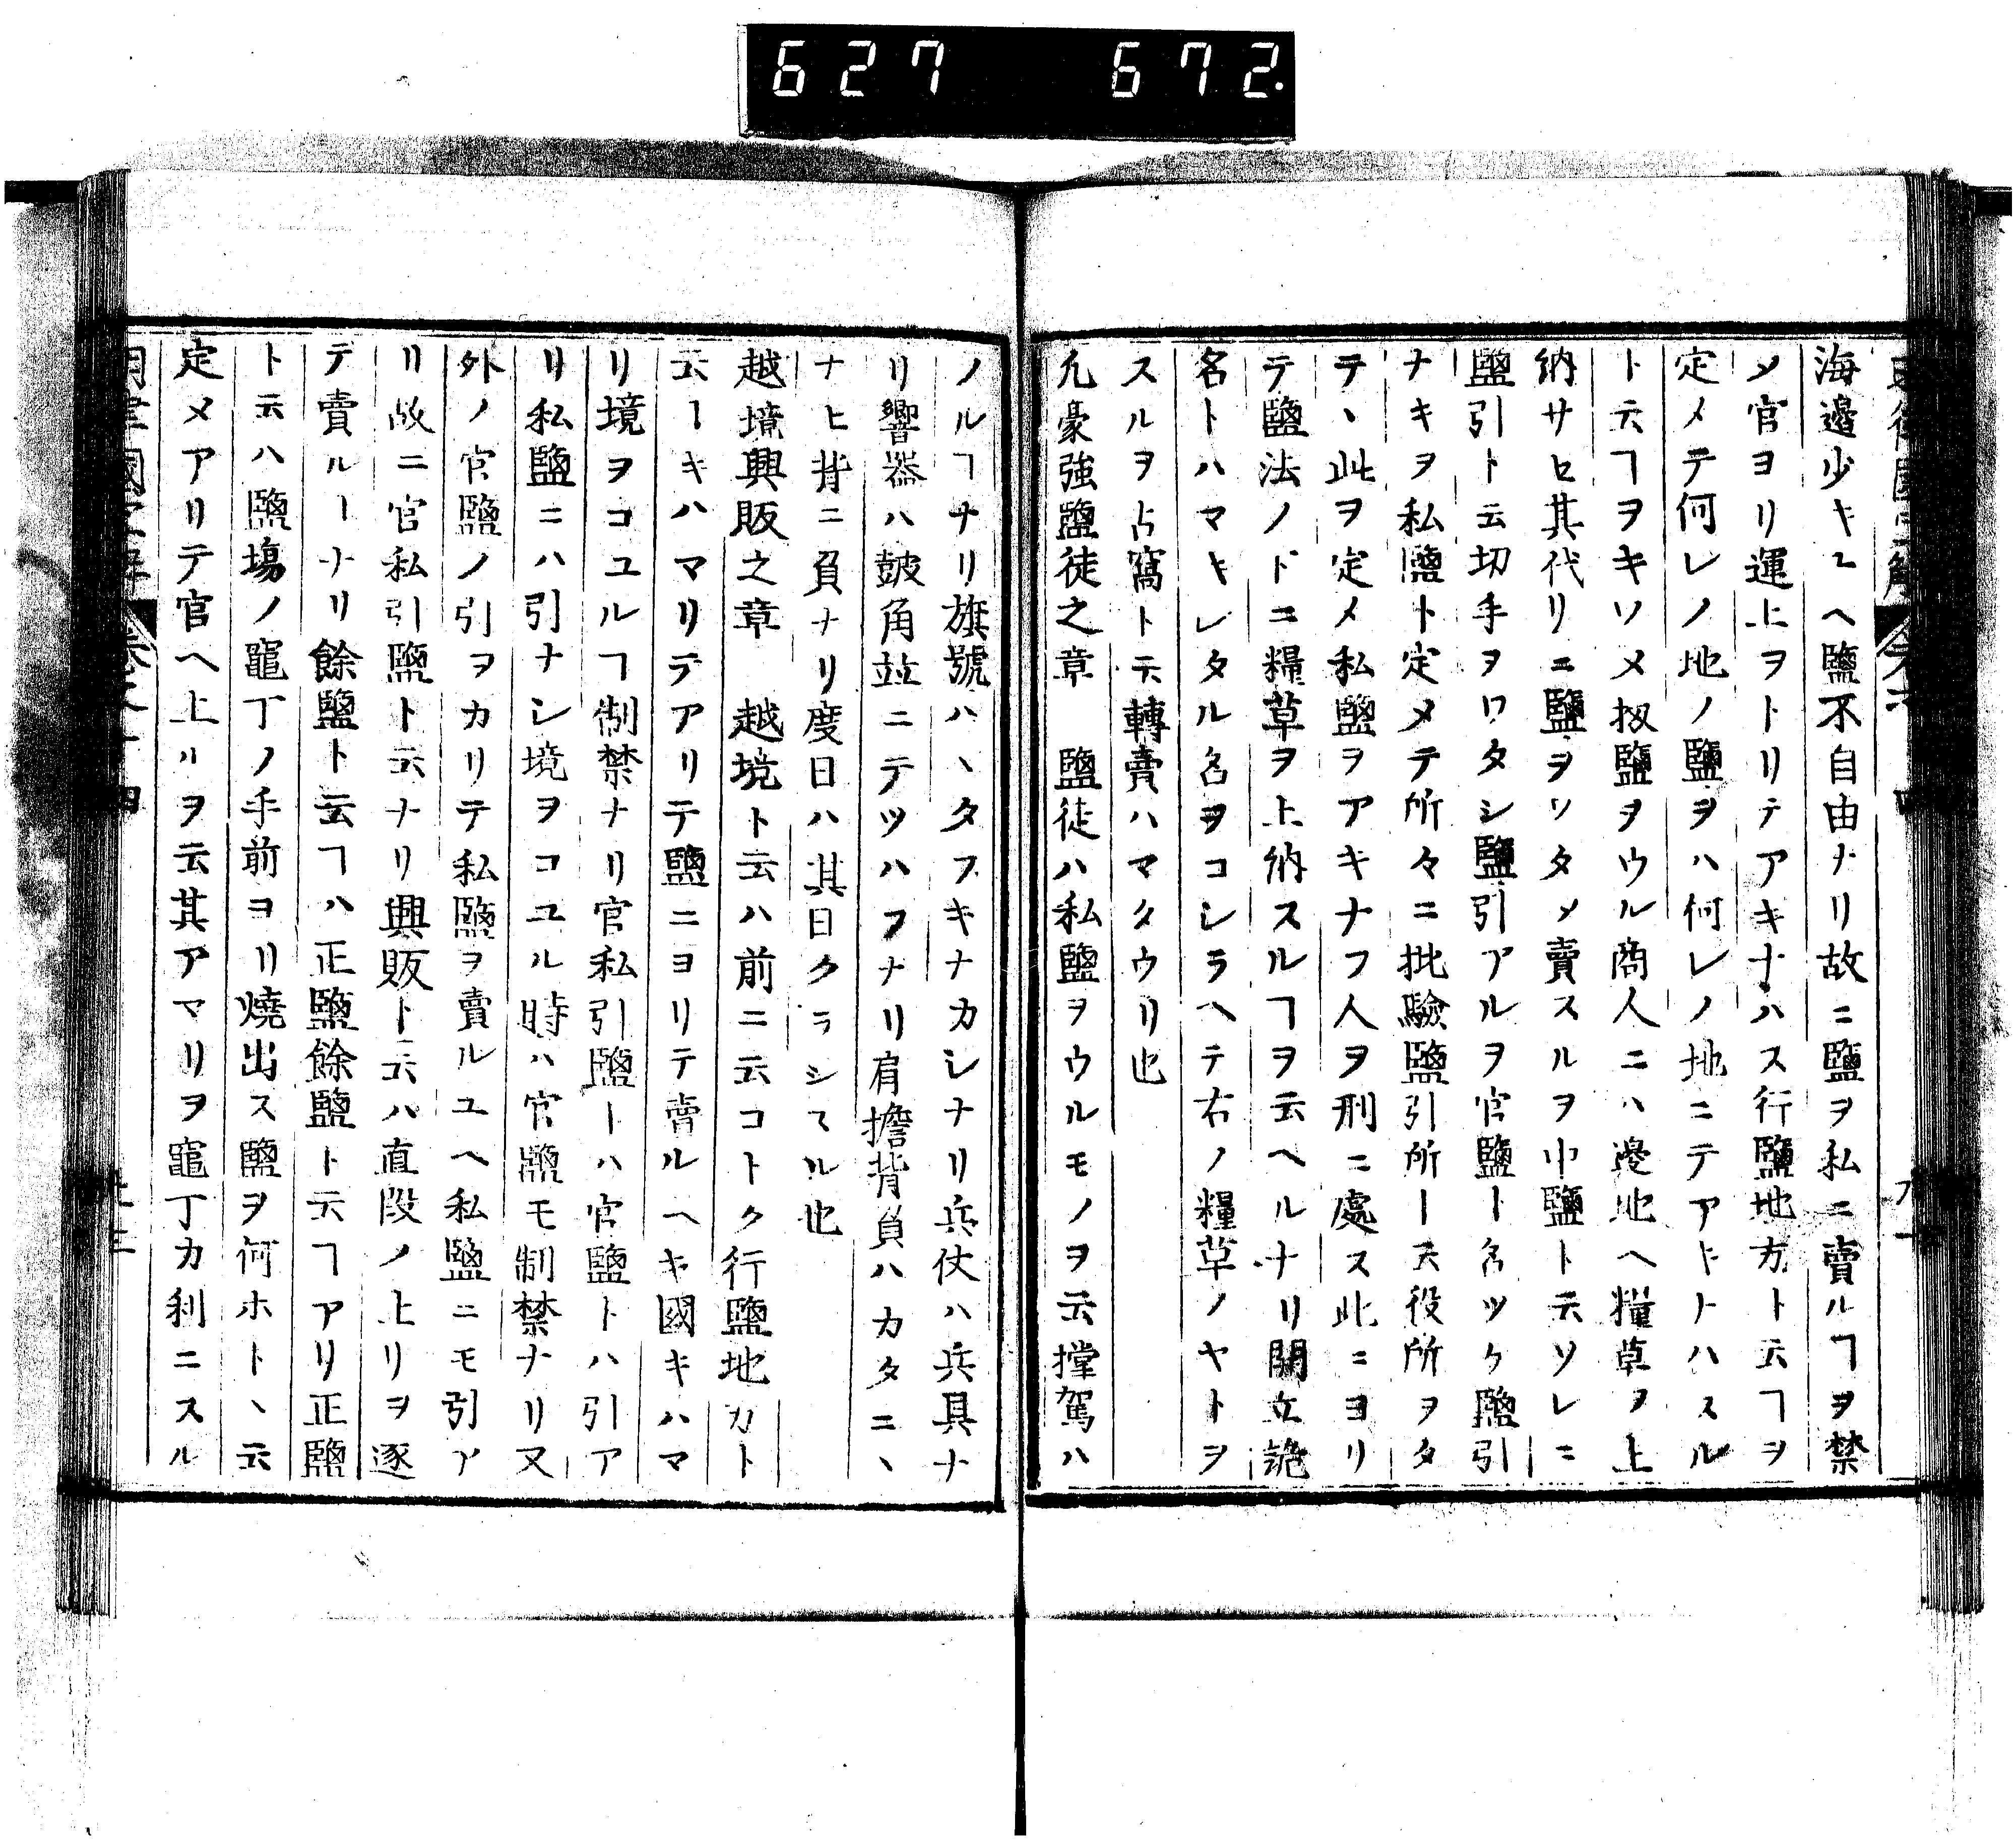 627 672.
海邉少キユヘ鹽不自由ナリ故ニ鹽ヲ私ニ賣ルヿヲ禁
メ官ヨリ運上ヲトリテアキナハス行鹽地方ト云ヿヲ
定メテ何レノ地ノ鹽ヲハ何レノ地ニテアキナハスル
ト云ヿヲキソメ扨鹽ヲウル商人ニハ邉地ヘ糧草ヲ上
納サセ其代リニ鹽ヲワタメ賣スルヲ中鹽ト云ソレニ
鹽引ト云切手ヲワタシ鹽引アルヲ官鹽ト名ツケ鹽引
ナキヲ私鹽ト定メテ所々ニ批驗鹽引所ト云役所ヲタ
テヽ此ヲ定メ私鹽ヲアキナフ人ヲ刑ニ處ス此ニヨリ
テ鹽法ノ下ニ糧草ヲ上納スルヿヲ云ヘルナリ開立詭
名トハマキレタル名ヲコシラヘテ右ノ糧草ノヤトヲ
スルヲ占窩ト云轉賣ハマタウリ也
凢豪強鹽徒之章　鹽徒ハ私鹽ヲウルモノヲ云撑駕ハ
ノルヿナリ旗號ハヽタフキナカシナリ兵仗ハ兵具ナ
リ響器ハ皷角並ニテツハフナリ肩擔背負ハカタニヽ
ナヒ背ニ負ナリ度日ハ其日クラシスル也
越境興販之章　越境ト云ハ前ニ云コトク行鹽地方ト
云ーキハマリテアリテ鹽ニヨリテ賣ルヘキ國キハマ
リ境ヲコユルヿ制禁ナリ官私引鹽ーハ官鹽トハ引ア
リ私鹽ニハ引ナシ境ヲコユル時ハ官鹽モ制禁ナリ又
外ノ官鹽ノ引ヲカリテ私鹽ヲ賣ルユヘ私鹽ニモ引ア
リ故ニ官私引鹽ト云ナリ興販ト云ハ直段ノ上リヲ逐
テ賣ルーナリ餘鹽ト云ヿハ正鹽餘鹽ト云ヿアリ正鹽
ト云ハ鹽塲ノ竈丁ノ手前ヨリ燒出ス鹽ヲ何ホトヽ云
定メアリテ官ヘ上ルヲ云其アマリヲ竈丁カ利ニスル